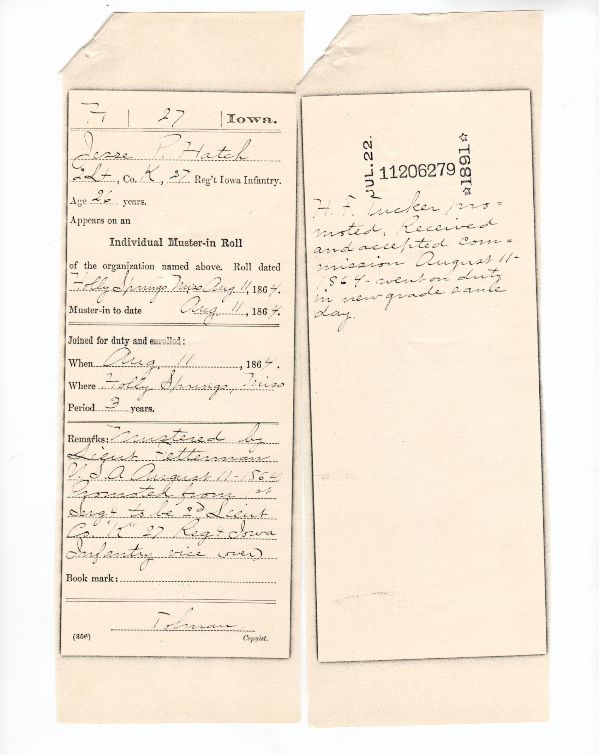 H | 27 | Iowa.
Jesse P. Hatch
2 Lt, Co. K, 27 Reg't Iowa Infantry.
Age 26 years.
Appears on an
Individual Muster-in Roll
of the organization named above. Roll dated
Holly Springs Miss Aug 11, 1864.
Muster-in to date Aug 11, 1864.
Joined for duty and enrolled:
When Aug. 11, 1864.
Where Holly Springs, Miss
Period 3 years.
Remarks: Mustered by
Lieut Fetterman
U.S.A August 11-1864
Promoted from 1st
Sergt to be 2d Lieut
Co. "K" 27 Regt Iowa
Infantry vice (over)
Book mark:
Tolman
(356) Copyist.
JUL. 22. 11206279 1891
H. F. Tucker pro-
moted. Received
and accepted com-
mission August 11-
1864- went on duty
in new grade same
day.